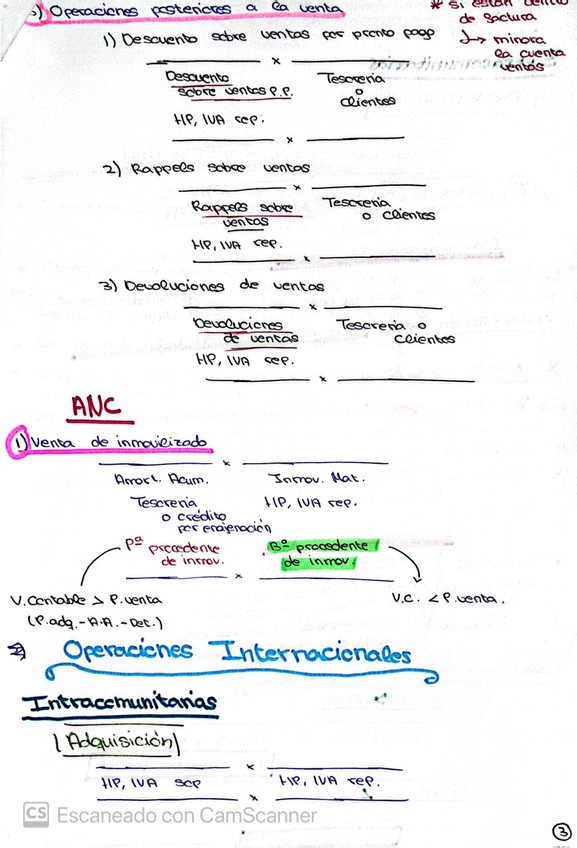 3) Operaciones posteriores a la venta
* Si están dentro
de factura
↳ minora
la cuenta
ventas
1) Descuento sobre ventas por pronto pago
x
Descuento Tesorería
sobre ventas P.P. o
clientes
HP, IVA rep.
x
2) Rappels sobre ventas
x
Rappels sobre Tesorería
ventas o clientes
HP, IVA rep.
x
3) Devoluciones de ventas
x
Devoluciones Tesorería o
de ventas clientes
HP, IVA rep.
x
ANC
1) Venta de inmovilizado
x
Amort. Acum. Inmov. Mat.
Tesorería HP, IVA rep.
o crédito
por enajenación
Pª procedente Bº procedente
de inmov. de inmov.
x
V. Contable > P. venta V.C. < P. venta.
(P. adq. - A.A. - Det.)
2) Operaciones Internacionales
Intracomunitarias
Adquisición
x
HP, IVA sop HP, IVA rep.
x
CS Escaneado con CamScanner
3